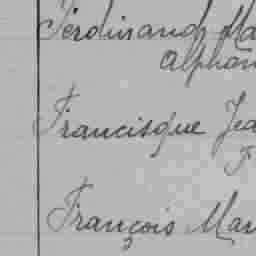 Ferdinand Ma
Alphon
Francisque Jea
F
François Mar